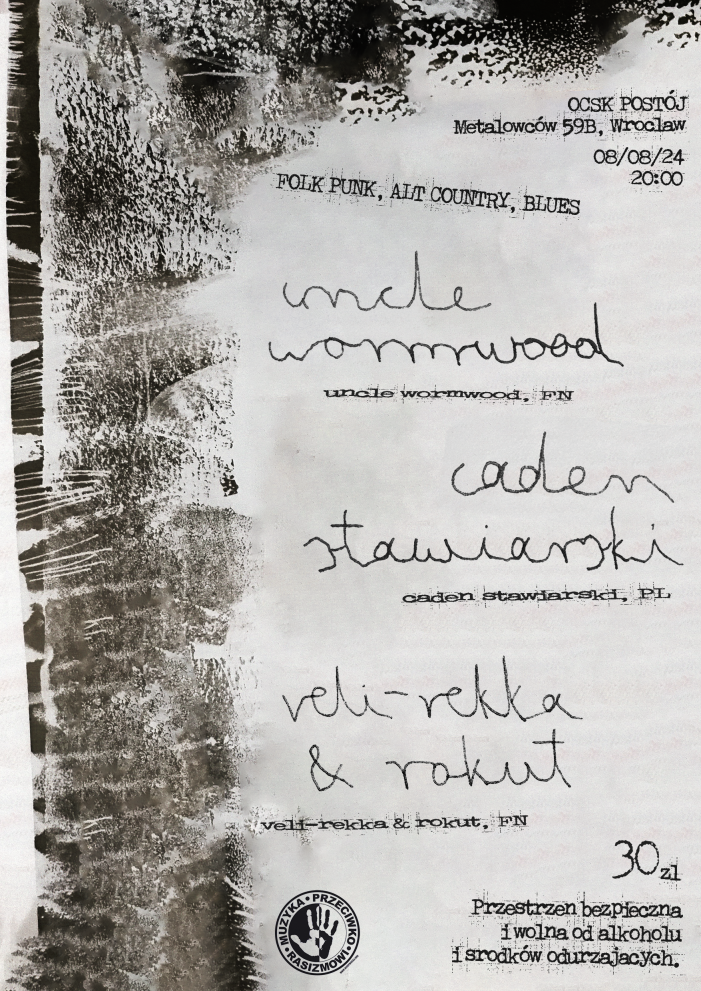 OCSK POSTÓJ
Metalowców 59B, Wroclaw
08/08/24
20:00
FOLK PUNK, ALT COUNTRY, BLUES
uncle
wormwood
uncle wormwood, FN
caden
stawiarski
caden stawiarski, PL
veli-rekka
& rokut
veli-rekka & rokut, FN
30zl
Przestrzen bezpieczna
i wolna od alkoholu
i srodków odurzajacych.
MUZYKA • PRZECIWKO • RASIZMOWI •